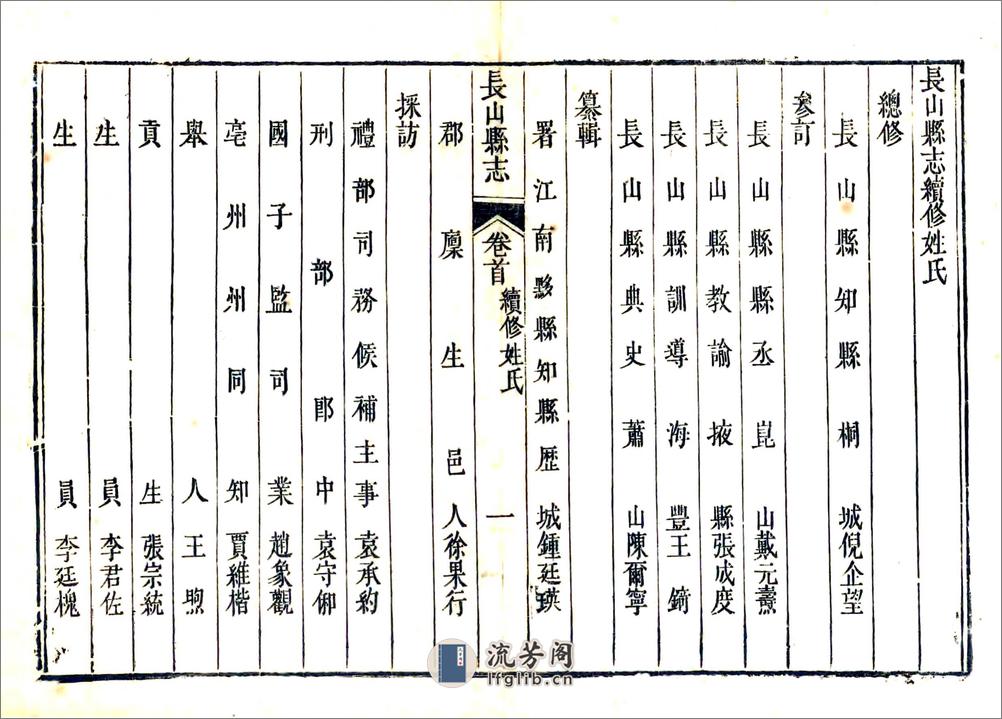 長山縣志續修姓氏
總修
長山縣知縣桐城倪企望
參訂
長山縣縣丞崑山戴元燾
長山縣教諭掖縣張成度
長山縣訓導海豐王錡
長山縣典史蕭山陳爾寧
纂輯
署江南黟縣知縣歷城鍾廷瑛
長山縣志 卷首 續修姓氏 一
郡廩生邑人徐果行
採訪
禮部司務候補主事袁承約
刑部郎中袁守御
國子監司業趙象觀
亳州州同知賈維楷
舉人王煦
貢生張宗統
生員李君佐
生員李廷槐
流芳阁
lfglib.cn